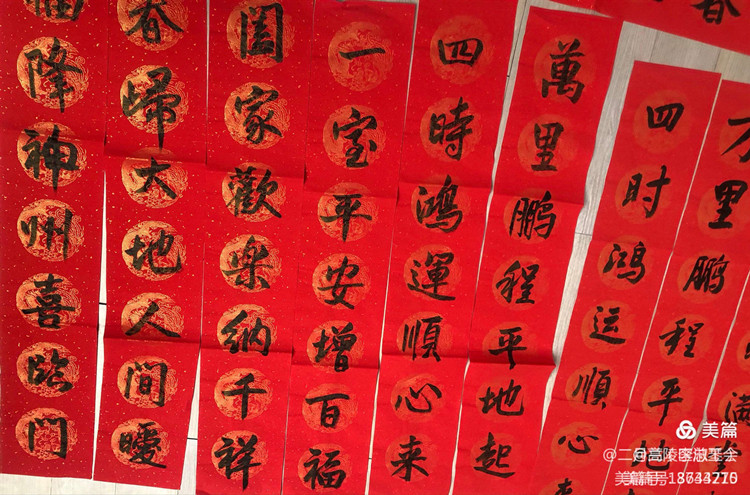 春
满
万里鹏程平地
四时鸿运順心来
萬里鵬程平地起
四時鴻運順心来
一室平安增百福
闔家歡樂納千祥
春歸大地人間暖
福降神州喜臨门
美篇
@二月高陵区淑琴会
美篇号:18644275